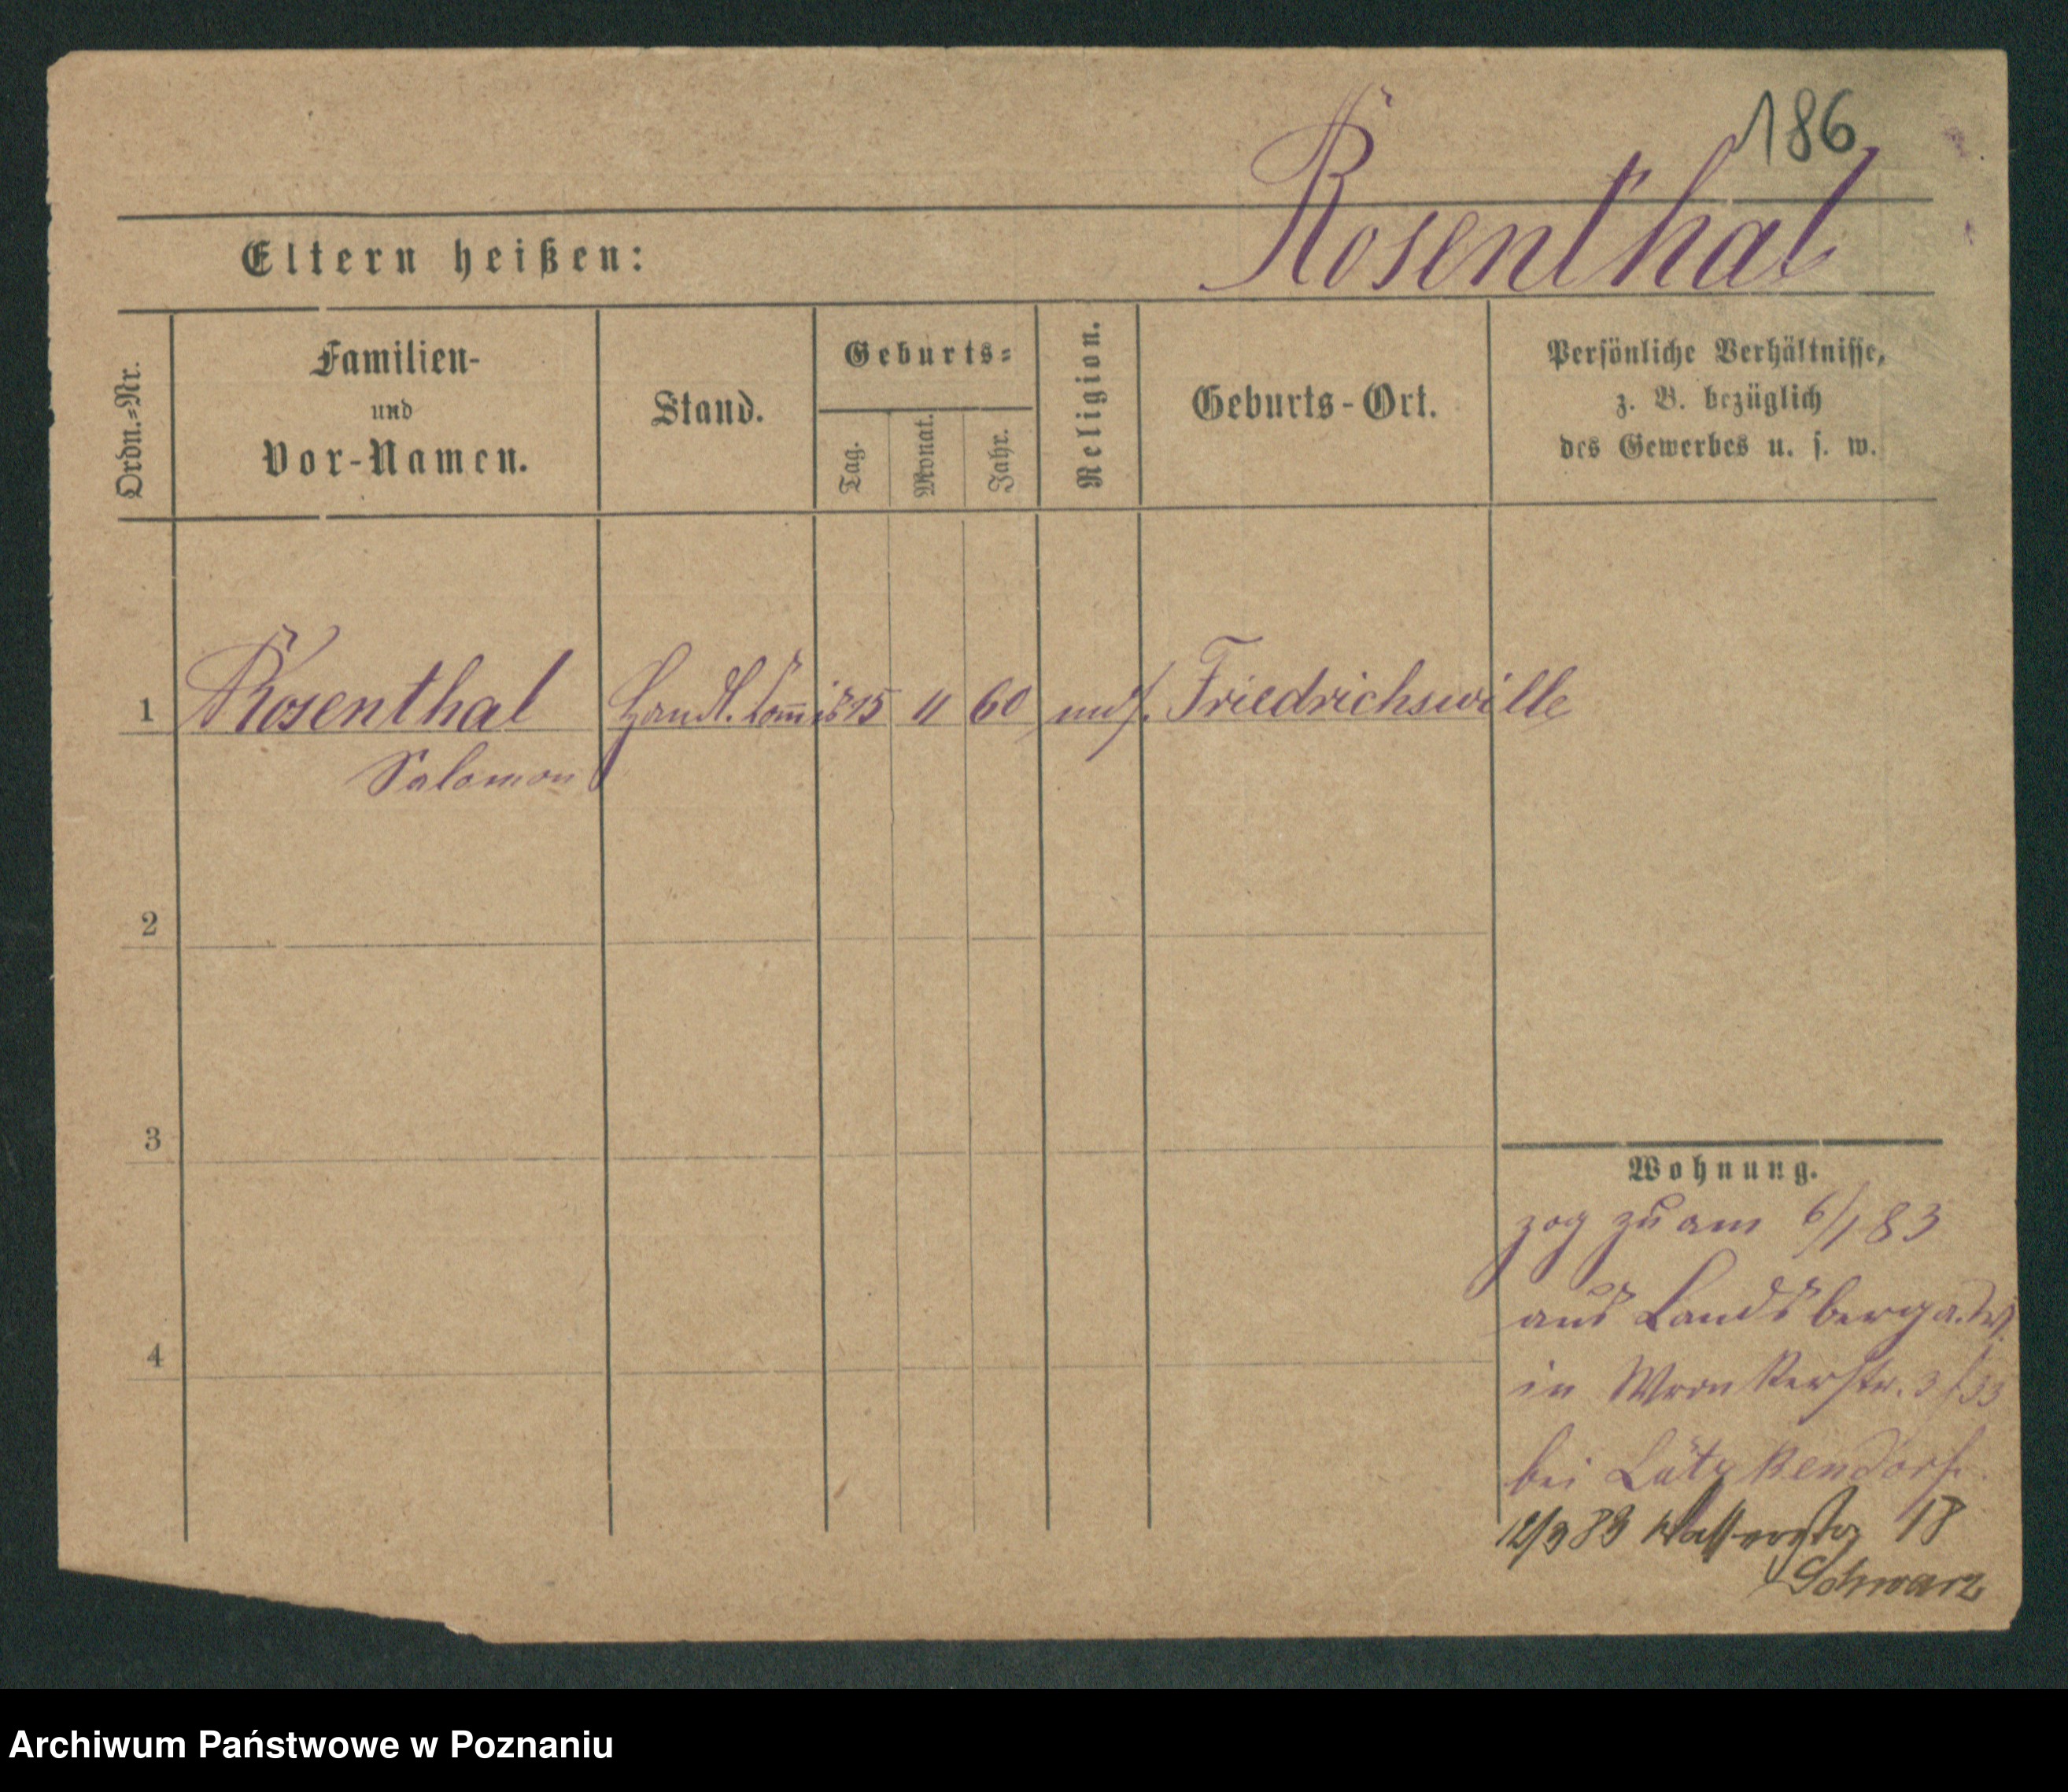 186
Rosenthal
Eltern heißen:
Ordn.=Nr.
Familien-
und
Vor-Namen.
Stand.
Geburts=
Tag.
Monat.
Jahr.
Religion.
Geburts-Ort.
Persönliche Verhältnisse,
z. B. bezüglich
des Gewerbes u. s. w.
1 Rosenthal Handl. Com̅is 15 11 60 mos. Friedrichswille
Salomon
2
3
4
Wohnung.
zog zu am 6/1 83
aus Landsberg a. W.
in Wronkerstr.
bei
12/3 83 Wasserstr 18
Schwarz
Archiwum Państwowe w Poznaniu